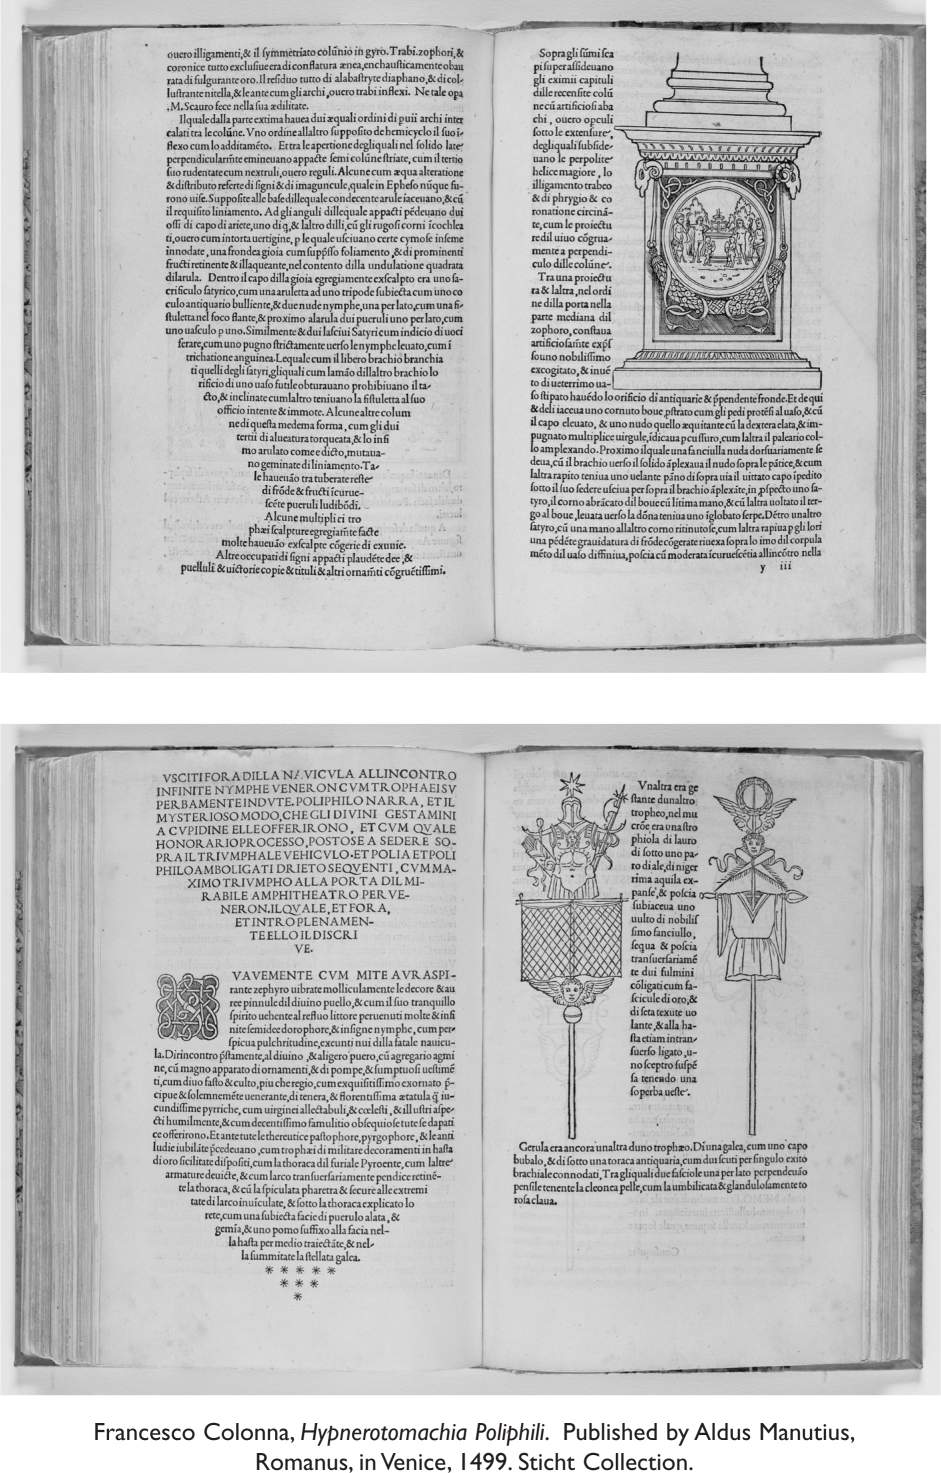 ouero illigamenti,& il symmetriato colũnio in gyro. Trabi.zophori,&
coronice tutto exclusiue era di conflatura ænea,enchausticamente obau
rata di fulgurante oro. Il residuo tutto di alabastryte diaphano,& di col-
lustrante nitella,& le ante cum gli archi,ouero trabi inflexi. Ne tale opa
.M.Scauro fece nella sua ædilitate.
Il quale dalla parte extima hauea dui æquali ordini di puii archi inter
calati tra le colũne. Vno ordine allaltro supposito de hemicyclo il suo i-
flexo cum lo additamẽto. Et tra le apertione degli quali nel solido late
perpendicularmẽte emineuano appacte semi colũne striate, cum il tertio
suo rudentate cum nextruli,ouero reguli. Alcune cum æqua alteratione
& distributo referte di signi & di imaguncule,quale in Epheso nũque fu-
rono uise. Supposite alle base dillequale condecente arule iaceuano,&cũ
il requisito liniamento. Ad gli anguli dillequale appacti pẽdeuano dui
ossi di capo di ariete,uno di q,& laltro dilli,cũ gli rugosi corni icochlea
ti,ouero cum intorta uertigine, p le quale usciuano certe cymose inseme
innodate , una frondea gioia cum suppsso foliamento ,& di prominenti
fructi retinente & illaqueante,nel contento dilla undulatione quadrata
dilarula. Dentro il capo dilla gioia egregiamente exscalpto era uno sa-
crificulo satyrico,cum una aruletta ad uno tripode subiecta cum uno co
culo antiquario bulliente,& due nude nymphe,una per lato,cum una fi-
stuletta nel foco flante,& proximo alarula dui pueruli uno per lato,cum
uno uasculo p uno. Similmente & dui lasciui Satyri cum indicio di uoci
ferare,cum uno pugno strictamente uerso le nymphe leuato,cum i
trichatione anguinea. Lequale cum il libero brachio branchia
ti quelli degli satyri,gliquali cum lamão dillaltro brachio lo
rificio di uno uaso futile obturauano prohibiuano il ta-
cto,& inclinate cum laltro teniuano la fistuletta al suo
officio intente & immote. Alcune altre colum
ne di questa medema forma, cum gli dui
tertii di alueatura torqueata,& lo infi
mo arulato come e dicto,mutaua-
no geminate di liniamento. Ta-
le haueuão tra tuberate reste
di frõde & fructi icurue-
scẽte pueruli ludibũdi.
Alcune multipli ci tro
phæi scalpture egregiamẽte facte
molte haueuão exscalpte cõgerie di exuuie.
Altre occupati di signi appacti plaudẽte dee ,&
puelluli & uictorie copie & tituli & altri ornamẽti cõgruẽtissimi.
Sopra gli sũmi sca
pi superassideuano
gli eximii capituli
dille recensite colũ
ne cũ artificiosi aba
chi , ouero opculi
sotto le extensure,
degliquali subside-
uano le perpolite
helice magiore , lo
illigamento trabeo
& di phrygio & co
ronatione circinã-
te,cum le proiectu
re dil uiuo cõgrua-
mente a perpendi-
culo dille colũne.
Tra una proiectu
ra & laltra,nel ordi
ne dilla porta nella
parte mediana dil
zophoro, constaua
artificiosamẽte expss
souno nobilissimo
excogitato, & inuẽ
to di ueterrimo ua-
so stipato hauẽdo lo orificio di antiquarie & ppendente fronde. Et de qui
& deli iaceua uno cornuto boue,pstrato cum gli pedi protẽsi al uaso,&cũ
il capo eleuato, & uno nudo quello æquitante cũ la dextera elata,& im-
pugnato multiplice uirgule,idicaua pcussuro,cum laltra il paleario col-
lo amplexando. Proximo ilquale una fanciulla nuda dorsuariamente se
deua,cũ il brachio uerso il solido ãplexaua il nudo sopra le pãtice,& cum
laltra rapito teniua uno uelante pãno di sopra uia il uittato capo ipedito
sotto il suo sedere usciua per sopra il brachio ãplexãte,in pspecto uno sa-
tyro,il corno abrãcato dil boue cũ lítima mano,& cũ laltra uoltato il ter-
go al boue ,leuata uerso la dõna teniua uno iglobato serpe. Dẽtro unaltro
satyro,cũ una mano allaltro corno ritinutose,cum laltra rapiua p gli lori
una pẽdẽte grauidatura di frõde cõgerate riuexa sopra lo imo dil corpula
mẽto dil uaso diffiniua,poscia cũ moderata icuruescẽtia allincõtro nella
y iii
VSCITI FORA DILLA NAVICVLA ALLINCONTRO
INFINITE NYMPHE VENERON CVM TROPHAEI SV
PERBAMENTE INDVTE. POLIPHILO NARRA, ET IL
MYSTERIOSO MODO,CHE GLI DIVINI GESTAMINI
A CVPIDINE ELLE OFFERIRONO, ET CVM QVALE
HONORARIO PROCESSO,POSTOSE A SEDERE SO-
PRA IL TRIVMPHALE VEHICVLO.ET POLIA ET POLI
PHILO AMBO LIGATI DRIETO SEQVENTI , CVM MA-
XIMO TRIVMPHO ALLA PORTA DIL MI-
RABILE AMPHITHEATRO PERVE-
NERON.ILQVALE, ET FORA,
ET INTRO PLENAMEN-
TE ELLO IL DISCRI
VE.
VAVEMENTE CVM MITE AVRA SPI-
rante zephyro uibrate molliculamente le decore & au
ree pinnule dil diuino puello,& cum il suo tranquillo
spirito uehente al refluo littore peruenuti molte & infi
nite semidee dorophore,& insigne nymphe, cum per-
spicua pulchritudine,excunti nui dilla fatale nauicu-
la. Dirincontro pstamente,al diuino ,& aligero puero,cũ agregario agmi
ne, cũ magno apparato di ornamenti,& di pompe,& sumptuosi uestimẽ
ti,cum diuo fasto & culto, piu che regio, cum exquisitissimo exornato p-
cipue & solemnemẽte uenerante,di tenera,& florentissima ætatula q iu-
cundissime pyrriche, cum uirginei allectabuli,& cœlesti ,& illustri aspe-
cti humilmente,& cum decentissimo famulitio obsequiose tute se dapati
ce offerirono. Et ante tute le thereutice pastophore,pyrgophore, & le anti
ludie iubilãte pcedeuano ,cum trophæi di militare decoramenti in hasta
di oro sicilitate dispositi,cum la thoraca dil furiale Pyroente, cum laltre
armature deuicte,& cum larco transuersariamente pendice retinẽ-
te la thoraca, & cũ la spiculata pharetra & secure alle extremi
tate di larco inuinculate, & sotto la thoraca explicato lo
rete,cum una subiecta facie di puerulo alata, &
gemia,& uno pomo suffixo alla facia nel-
la hasta per medio traiectãte,& nel-
la summitate la stellata galea.
* * * * *
* * *
*
Vnaltra era ge
stante dunaltro
tropheo,nel mu
crõe era una stro
phiola di lauro
di sotto uno pa-
ro di ale,di niger
rima aquila ex-
panse,& poscia
subiaceua uno
uulto di nobilis
simo fanciullo,
sequa & poscia
transuersariamẽ
te dui fulmini
cõligati cum fa-
scicule di oro,&
di seta texute uo
lante,& alla ha-
sta etiam intran-
suerso ligato,u-
no sceptro suspẽ
sa tenendo una
soperba ueste.
Gerula era ancora unaltra duno trophæo. Di una galea, cum uno capo
bubalo,& di sotto una toraca antiquaria,cum dui scuti per singulo exito
brachiale connodati,Tra gliquali due fasciole una per lato perpendeuão
pensile tenente la cleonea pelle,cum la umbilicata & glandulosamente to
rosa claua.
Francesco Colonna, Hypnerotomachia Poliphili. Published by Aldus Manutius,
Romanus, in Venice, 1499. Sticht Collection.